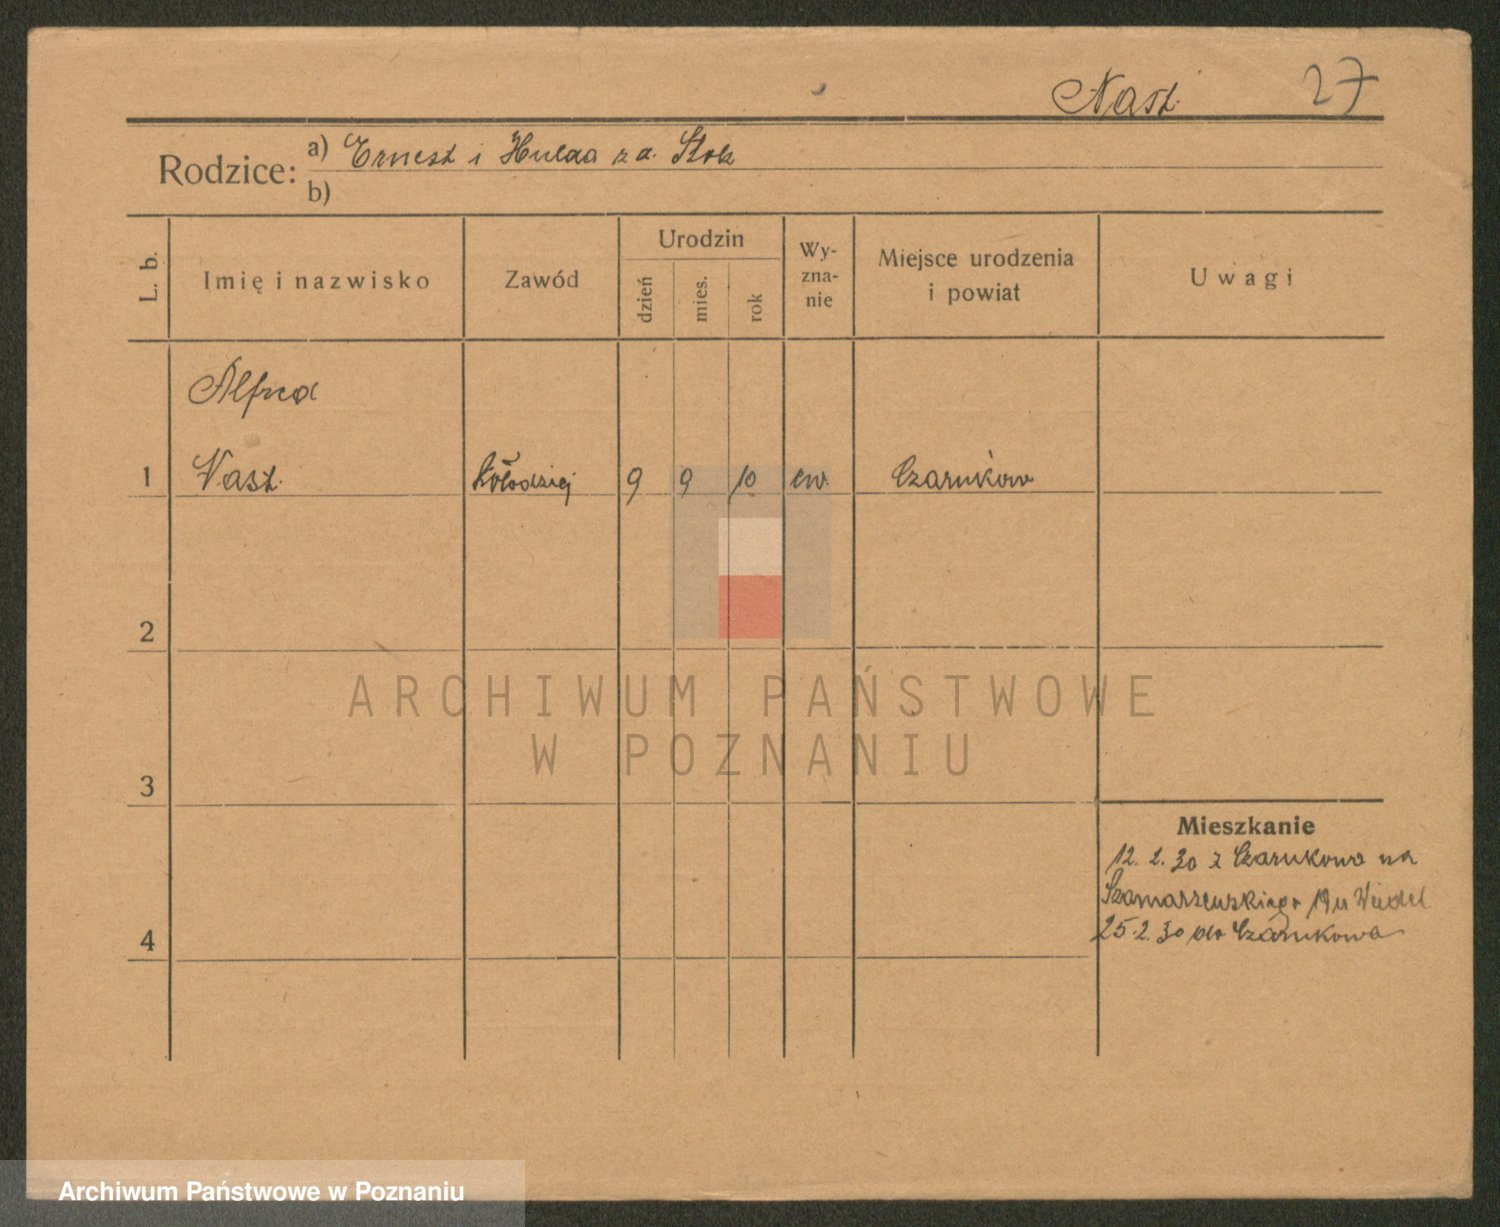 Nast. 27
Rodzice: a) Ernest i Hulda z d. Stolz
b)
L. b. Imię i nazwisko Zawód Urodzin dzień mies. rok Wyznanie Miejsce urodzenia i powiat Uwagi
Alfred
1 Nast. kołodziej 9 9 10 ew. Czarnków
2
3
4
Mieszkanie
12. 2. 30 z Czarnkowa na
Szamarzewskiego 19 u
25. 2. 30 do Czarnkowa
ARCHIWUM PAŃSTWOWE
W POZNANIU
Archiwum Państwowe w Poznaniu